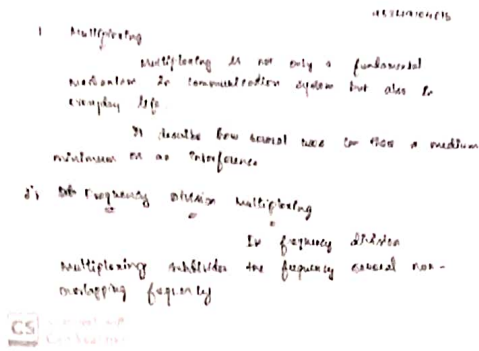 1 Multiplexing
Multiplexing is not only a fundamental
mechanism in communication system but also in
everyday life
It describe how several can a medium
minimum or an interference
Frequency division multiplexing
In frequency division
multiplexing subdivides the frequency several non-
overlapping frequency
CS